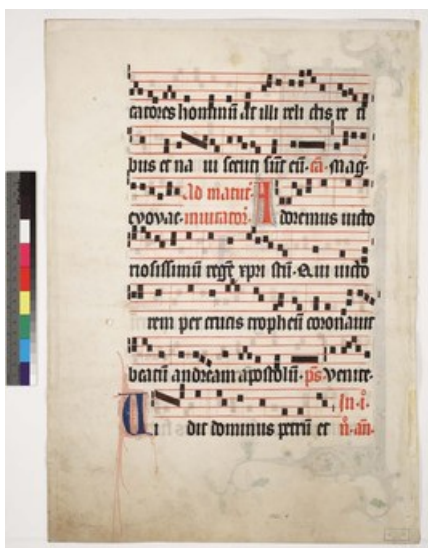 catores hominū at illi reli ctis re ti
bus et na ui secuti sūt eū · cā · Mag·
evovae · Ad matut̄ inuitator̄ · A doremus uicto
riosissimū regē xp̄i stū · Qui uicto
rem per crucis tropheū coronauit
beatū andream apostolū · p̄s · Venite ·
Ui dit dominus petrū et In · i · n̄ · an̄ ·